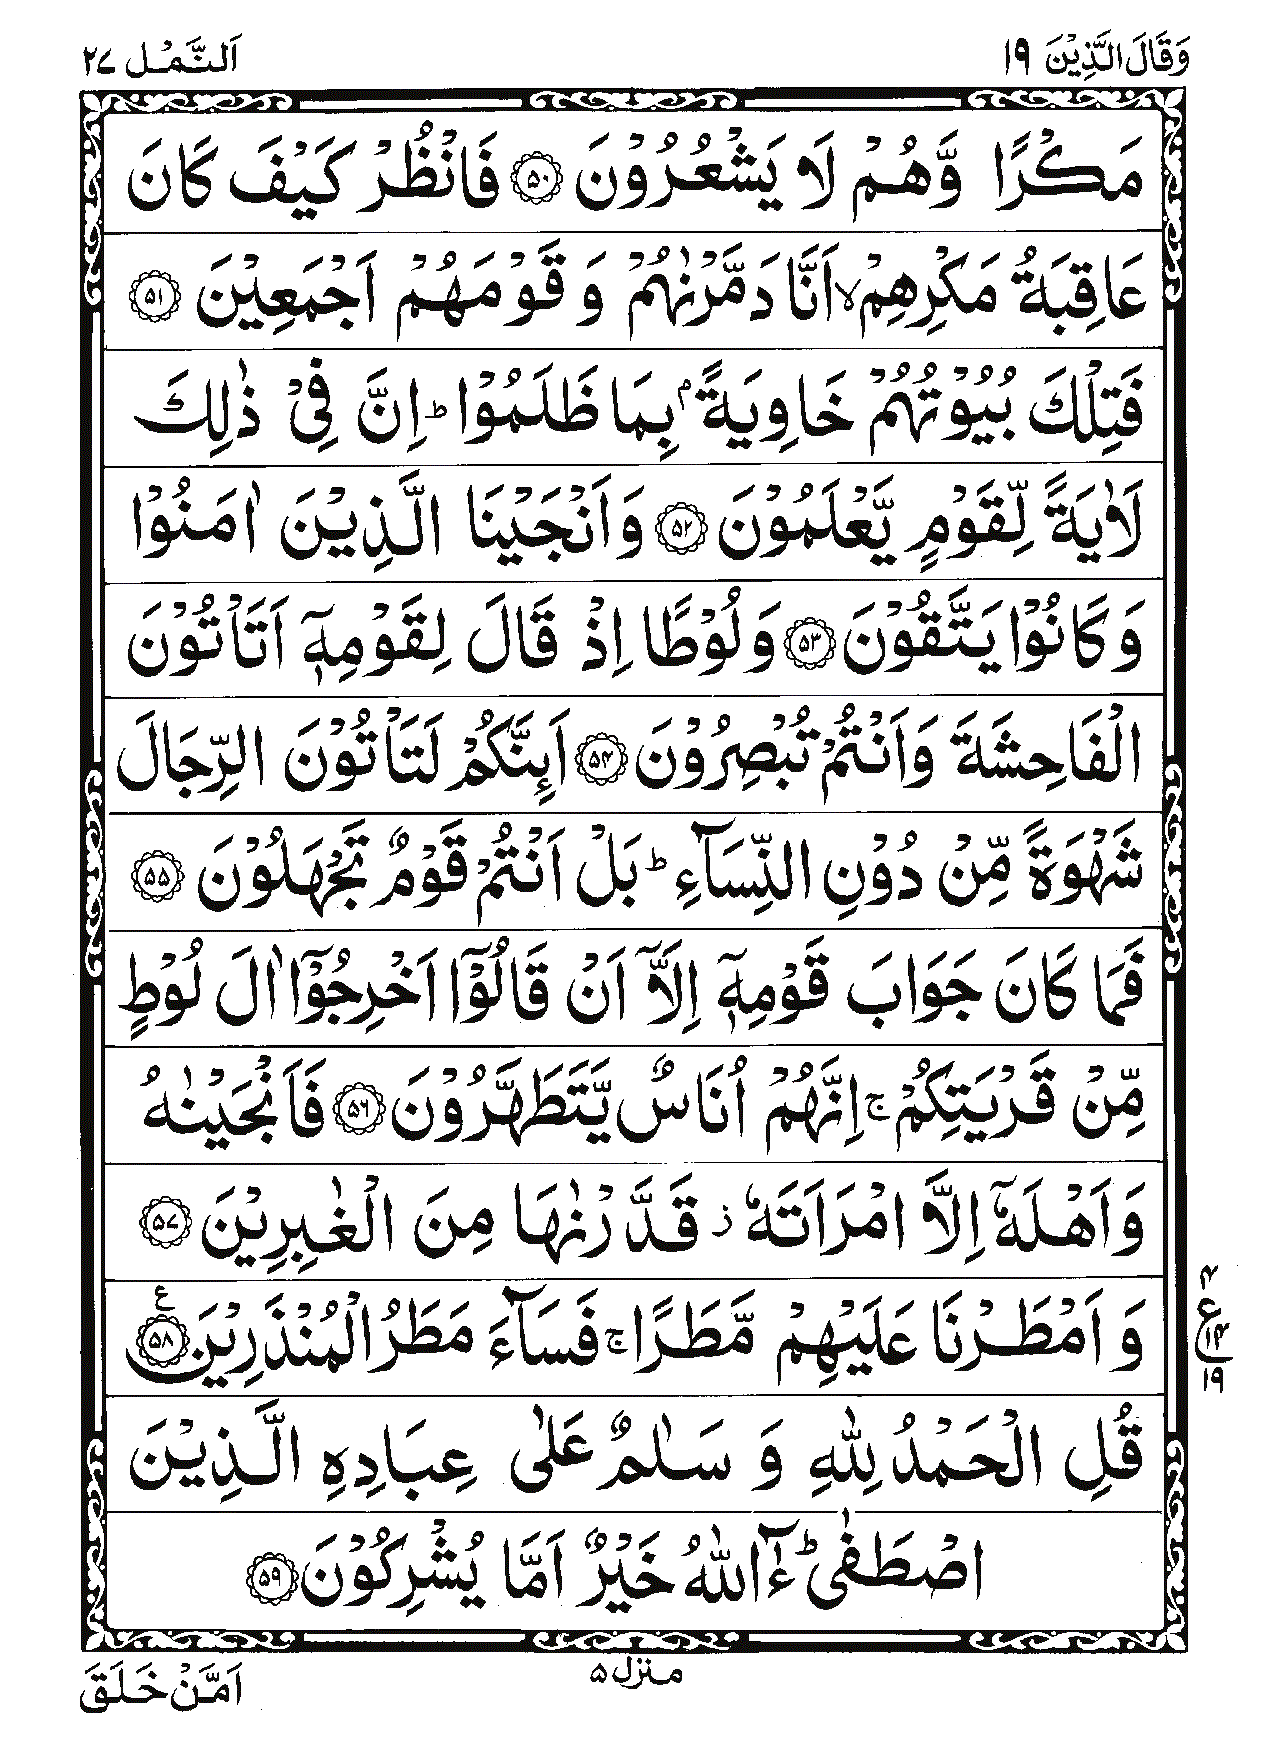 وَقَالَ الَّذِيْنَ ١٩
اَلنَّمْل ٢٧
مَكْرًا وَّهُمْ لَا يَشْعُرُوْنَ ۝٥٠ فَانْظُرْ كَيْفَ كَانَ
عَاقِبَةُ مَكْرِهِمْ ۙ اَنَّا دَمَّرْنٰهُمْ وَ قَوْمَهُمْ اَجْمَعِيْنَ ۝٥١
فَتِلْكَ بُيُوْتُهُمْ خَاوِيَةًۢ بِمَا ظَلَمُوْا ؕ اِنَّ فِيْ ذٰلِكَ
لَاٰيَةً لِّقَوْمٍ يَّعْلَمُوْنَ ۝٥٢ وَاَنْجَيْنَا الَّذِيْنَ اٰمَنُوْا
وَكَانُوْا يَتَّقُوْنَ ۝٥٣ وَلُوْطًا اِذْ قَالَ لِقَوْمِهٖۤ اَتَاْتُوْنَ
الْفَاحِشَةَ وَاَنْتُمْ تُبْصِرُوْنَ ۝٥٤ اَئِنَّكُمْ لَتَاْتُوْنَ الرِّجَالَ
شَهْوَةً مِّنْ دُوْنِ النِّسَآءِ ؕ بَلْ اَنْتُمْ قَوْمٌ تَجْهَلُوْنَ ۝٥٥
فَمَا كَانَ جَوَابَ قَوْمِهٖۤ اِلَّاۤ اَنْ قَالُوْۤا اَخْرِجُوْۤا اٰلَ لُوْطٍ
مِّنْ قَرْيَتِكُمْ ۚ اِنَّهُمْ اُنَاسٌ يَّتَطَهَّرُوْنَ ۝٥٦ فَاَنْجَيْنٰهُ
وَاَهْلَهٗۤ اِلَّا امْرَاَتَهٗ ز قَدَّرْنٰهَا مِنَ الْغٰبِرِيْنَ ۝٥٧
وَ اَمْطَرْنَا عَلَيْهِمْ مَّطَرًا ۚ فَسَآءَ مَطَرُ الْمُنْذَرِيْنَ ۝٥٨ ع
٤
ع
١٤
١٩
قُلِ الْحَمْدُ لِلّٰهِ وَ سَلٰمٌ عَلٰى عِبَادِهِ الَّذِيْنَ
اصْطَفٰى ؕ ءٰٓاللّٰهُ خَيْرٌ اَمَّا يُشْرِكُوْنَ ۝٥٩
منزل ٥
اَمَّنْ خَلَقَ